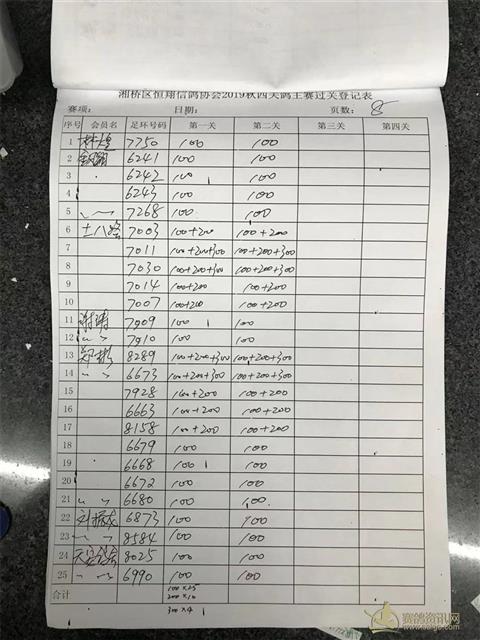 湘桥区恒翔信鸽协会2019秋四关鸽王赛过关登记表
赛项： 日期： 页数： 8
序号 会员名 足环号码 第一关 第二关 第三关 第四关
1 林煌 7750 100 100
2 6241 100 100
3 6242 100 100
4 6243 100 100
5 7268 100 100
6 土八路 7003 100+200 100+200
7 7011 100+200+300 100+200+300
8 7030 100+200+300 100+200+300
9 7014 100+200 100+200
10 7007 100+200 100+200
11 谢涛 7909 100 100
12 7910 100 100
13 郑彬 8289 100+200+300 100+200+300
14 6673 100+200+300 100+200+300
15 7928 100+200 100+200
16 6663 100+200 100+200
17 8158 100+200 100+200
18 6679 100 100
19 6668 100 100
20 6672 100 100
21 6680 100 100
22 刘振成 6873 100 100
23 8584 100 100
24 8025 100 100
25 6990 100 100
合计 100×25
200×10
300×4
赛鸽资讯网